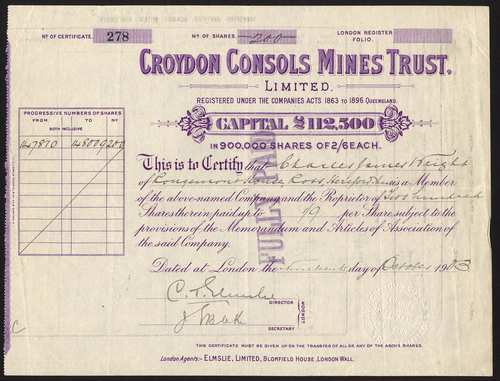 Nº OF CERTIFICATE. 278
Nº OF SHARES. 200
LONDON REGISTER FOLIO.
CROYDON CONSOLS MINES TRUST,
LIMITED.
REGISTERED UNDER THE COMPANIES ACTS 1863 TO 1896 QUEENSLAND.
CAPITAL £112,500
IN 900,000 SHARES OF 2/6 EACH.
PROGRESSIVE NUMBERS OF SHARES
FROM TO Nº
BOTH INCLUSIVE
200
This is to Certify that Charles James
of House, Ross, is a Member
of the above-named Company and the Proprietor of Two hundred
Shares therein paid up to per Share subject to the
provisions of the Memorandum and Articles of Association of
the said Company.
Dated at London the day of October 19
DIRECTOR
SECRETARY
LONDON
THIS CERTIFICATE MUST BE GIVEN UP ON THE TRANSFER OF ALL OR ANY OF THE ABOVE SHARES.
London Agents:- ELMSLIE, LIMITED, BLOMFIELD HOUSE, LONDON WALL.